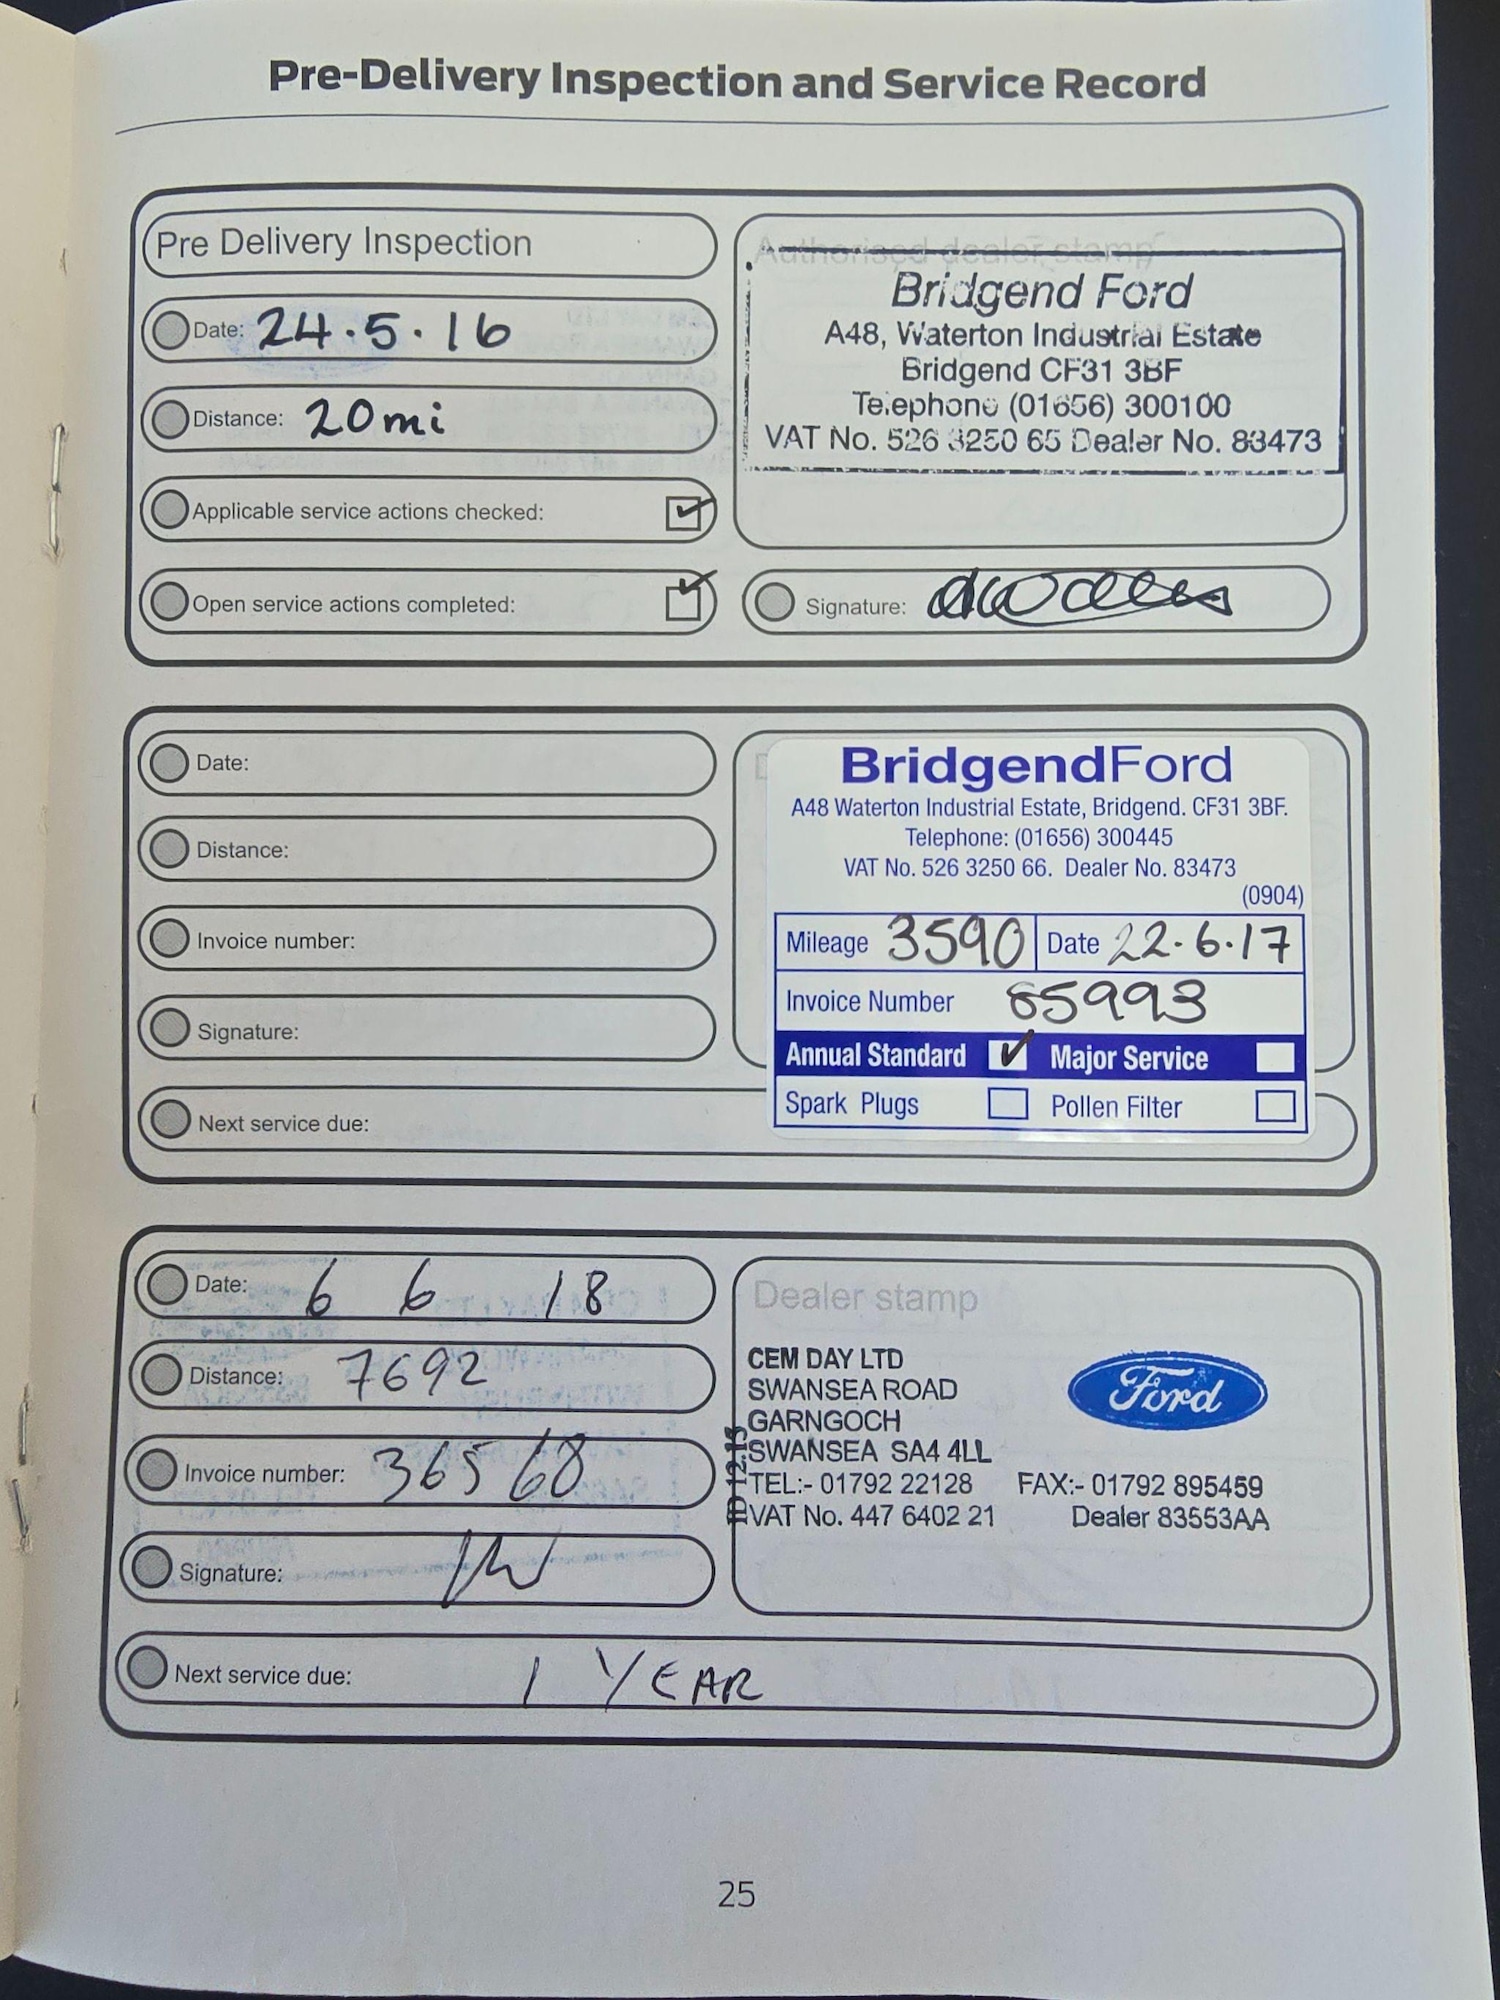 Pre-Delivery Inspection and Service Record
Pre Delivery Inspection
Date: 24.5.16
Distance: 20mi
Applicable service actions checked:
Open service actions completed:
Authorised dealer stamp
Bridgend Ford
A48, Waterton Industrial Estate
Bridgend CF31 3BF
Telephone (01656) 300100
VAT No. 526 3250 65 Dealer No. 83473
Signature:
Date:
Distance:
Invoice number:
Signature:
Next service due:
BridgendFord
A48 Waterton Industrial Estate, Bridgend. CF31 3BF.
Telephone: (01656) 300445
VAT No. 526 3250 66. Dealer No. 83473
(0904)
Mileage 3590 Date 22.6.17
Invoice Number 85993
Annual Standard Major Service
Spark Plugs Pollen Filter
Date: 6 6 18
Distance: 7692
Invoice number: 36568
Signature:
Next service due: 1 YEAR
Dealer stamp
CEM DAY LTD
SWANSEA ROAD
GARNGOCH
SWANSEA SA4 4LL
TEL:- 01792 22128 FAX:- 01792 895459
VAT No. 447 6402 21 Dealer 83553AA
Ford
ID 12.15
25